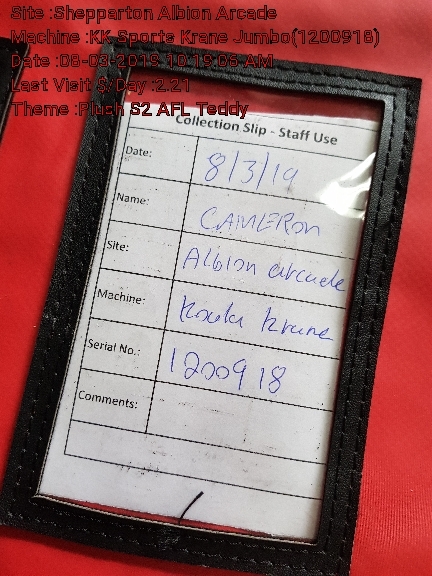 Site :Shepparton Albion Arcade
Machine :KK Sports Krane Jumbo(1200918)
Date :08-03-2019 10:19:06 AM
Last Visit $/Day :2.21
Theme :Plush S2 AFL Teddy
Collection Slip - Staff Use
Date: 8/3/19
Name: CAMERON
Site: Albion arcade
Machine: Krane
Serial No.: 1200918
Comments: